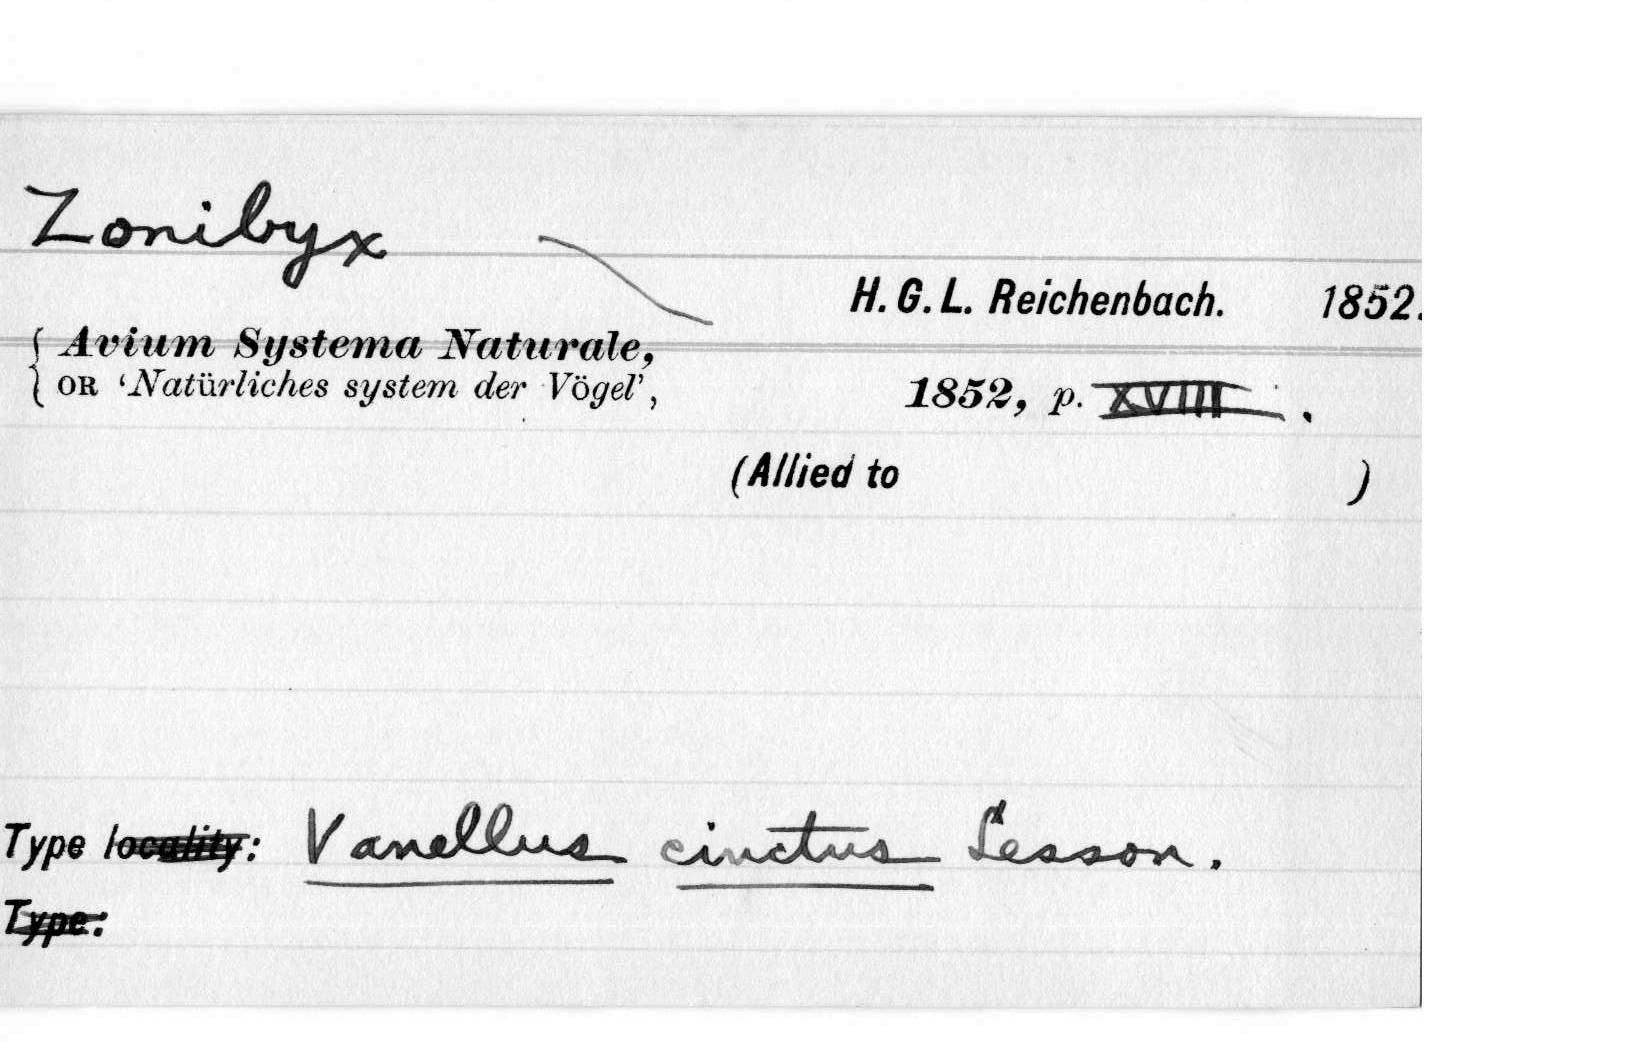 Zonibyx
H. G. L. Reichenbach. 1852.
{ Avium Systema Naturale,
{ OR ‘Natürliches system der Vögel’, 1852, p. XVIII .
(Allied to )
Type locality: Vanellus cinctus Lesson.
Type: